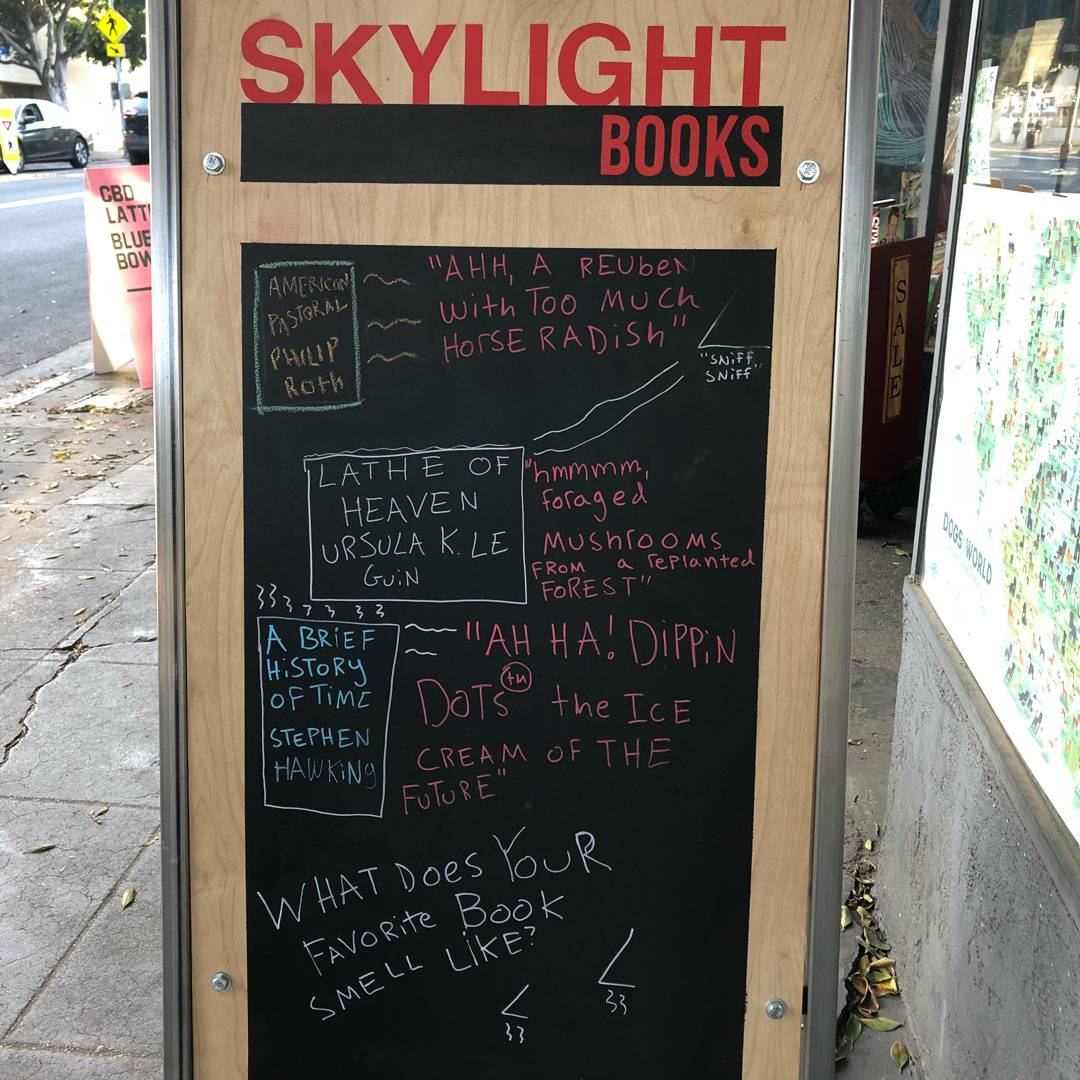 SKYLIGHT
BOOKS
CBD
LATT
BLUE
BOW
AMERICAN
PASTORAL
PHILIP
ROTH
"AHH, A REUBEN
WITH TOO MUCH
HORSE RADISH"
"SNIFF,
SNIFF"
LATHE OF
HEAVEN
URSULA K. LE
GUIN
"hmmmm,
foraged
MUSHROOMS
FROM a replanted
FOREST"
A BRIEF
HISTORY
OF TIME
STEPHEN
HAWKING
"AH HA! DIPPIN
DOTS tm the ICE
CREAM OF THE
FUTURE"
WHAT DOES YOUR
FAVORITE BOOK
SMELL LIKE?
SALE
DOGS
WORLD